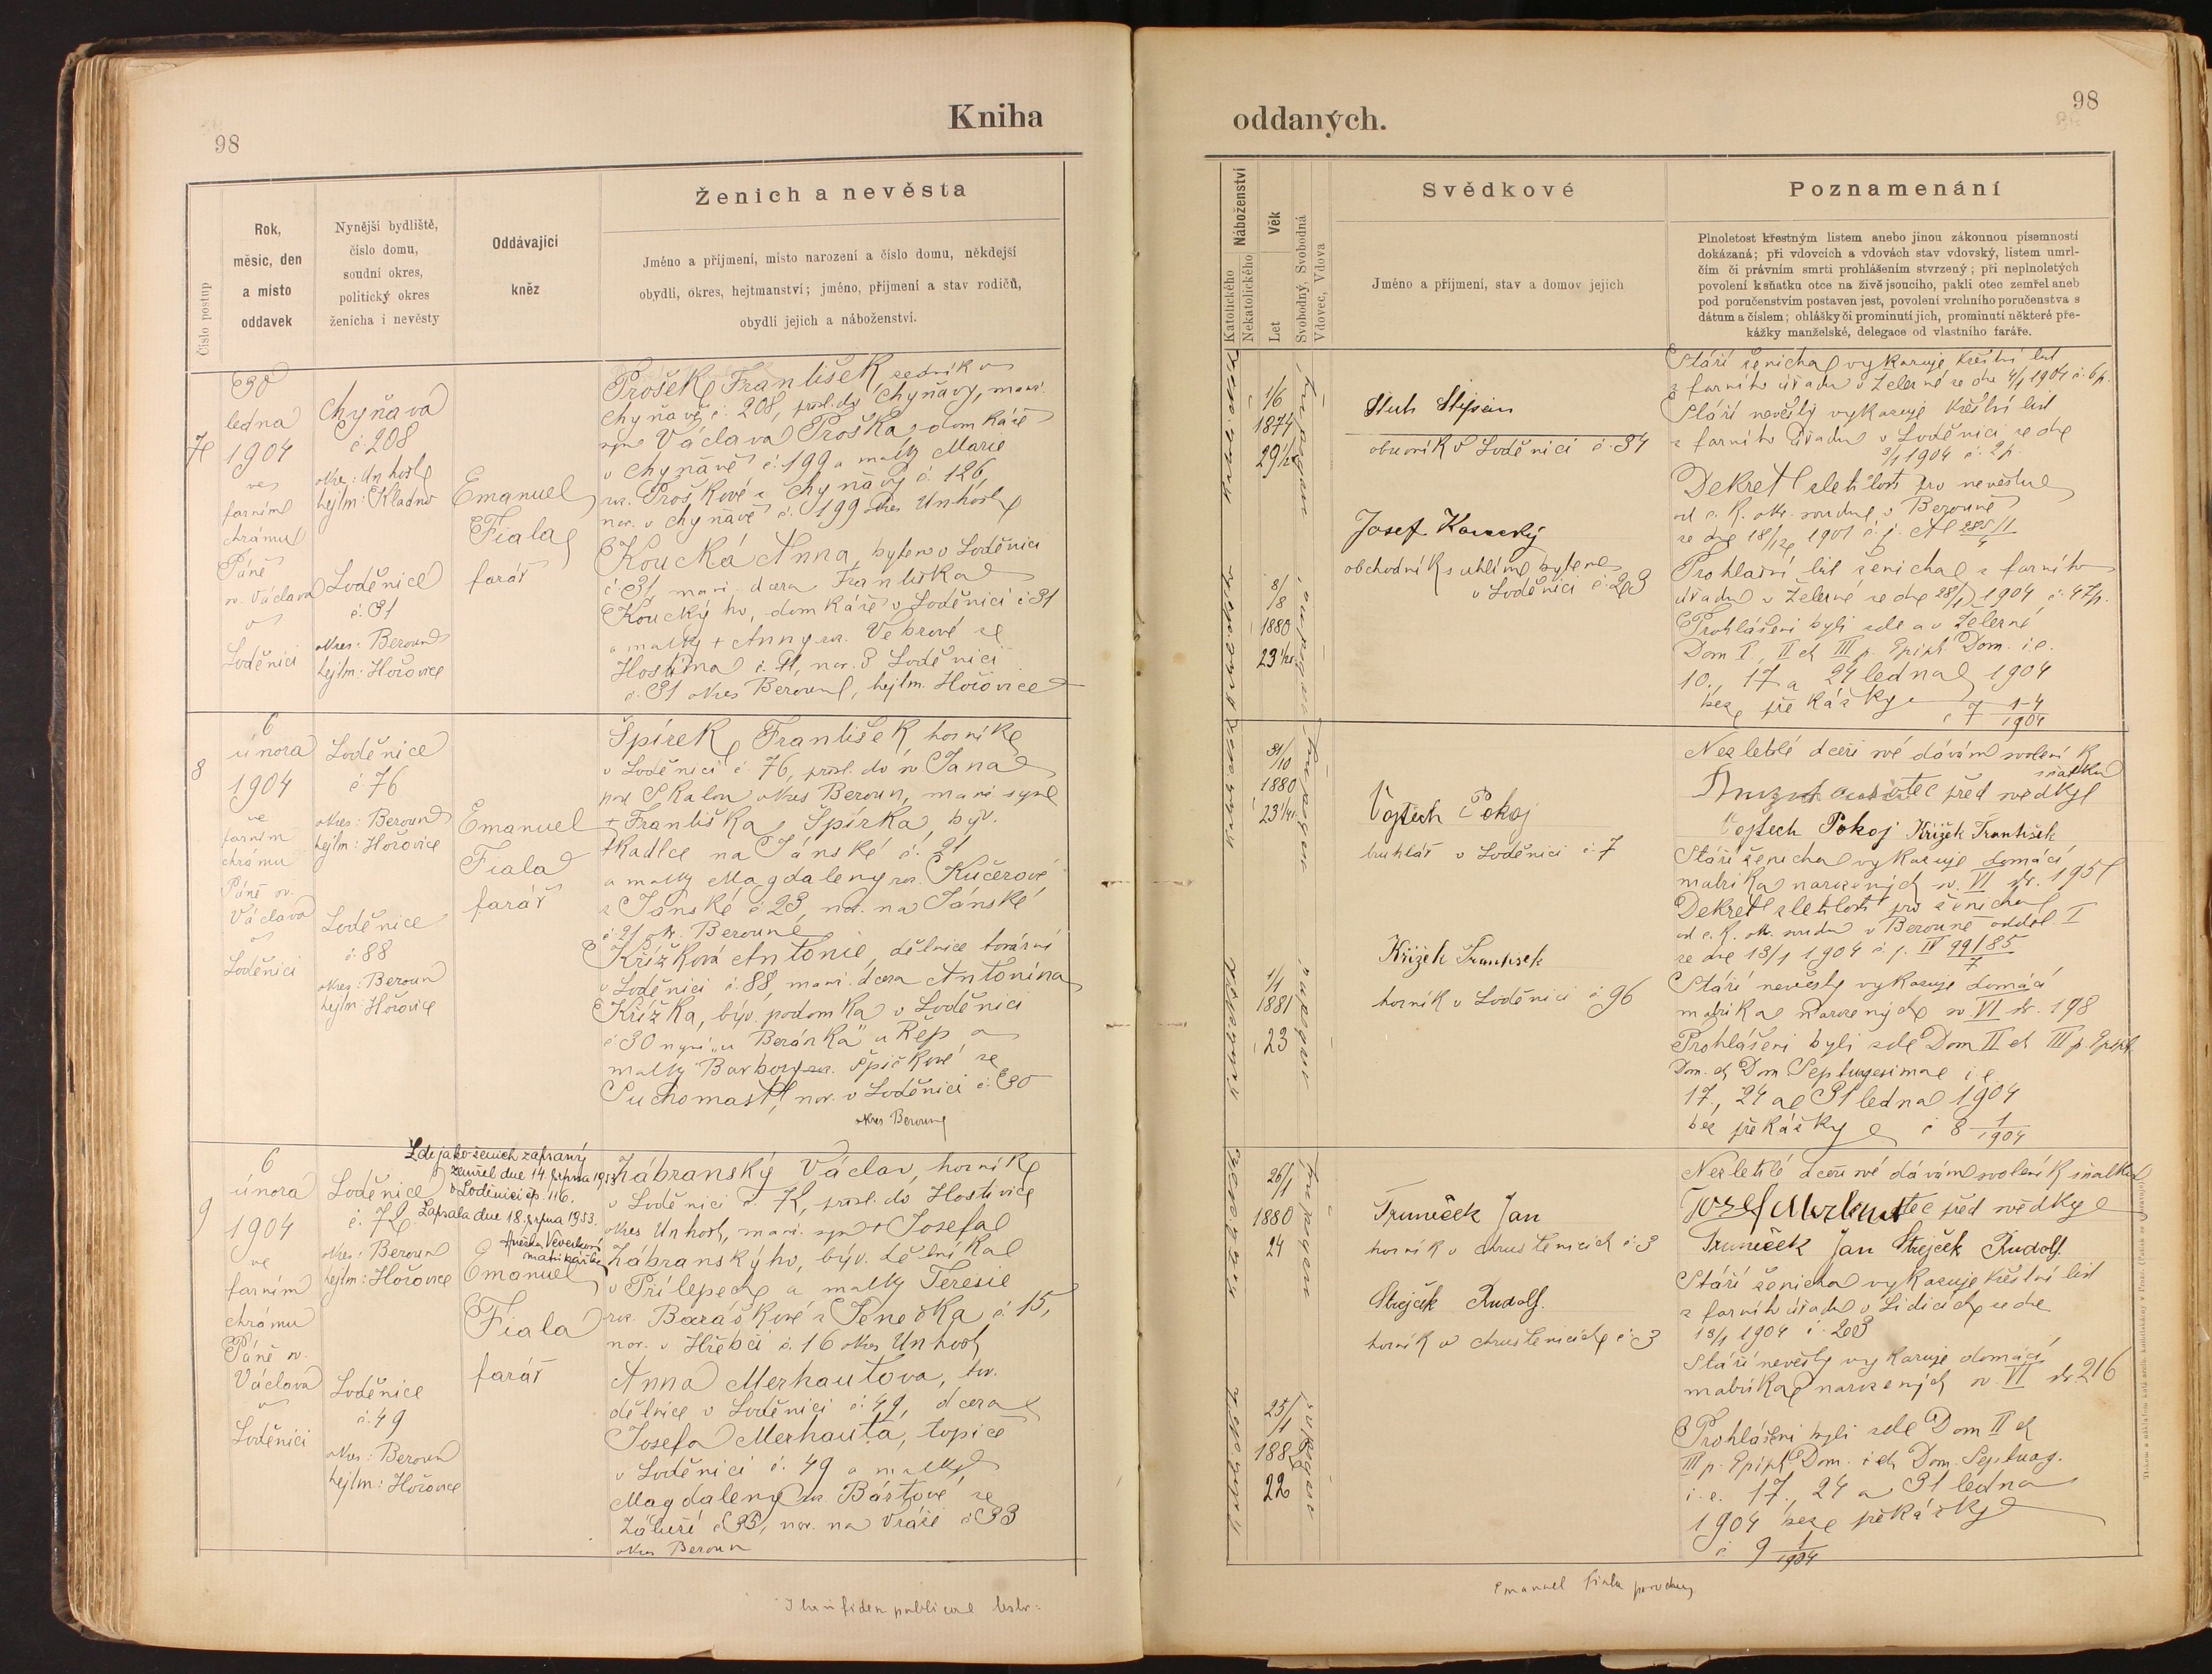 98
Kniha
Číslo postup
Rok,
měsíc, den
a místo
oddavek
Nynější bydliště,
číslo domu,
soudní okres,
politický okres
ženicha i nevěsty
Oddávající
kněz
Ženich a nevěsta
Jméno a příjmení, místo narození a číslo domu, někdejší
obydlí, okres, hejtmanství; jméno, příjmení a stav rodičů,
obydlí jejich a náboženství.
7
30
ledna
1904
ve
farním
chrámu
Páně
sv. Václava
v
Loděnici
Chyňava
č 208
okr.: Unhošť
hejtm: Kladno
Loděnice
č. 31
okres: Beroun
hejtm: Hořovice
Emanuel
Fiala
farář
Prošek František
Chyňavě č. 208, Chyňavy, man.
syn Václava Proška domkáře
v Chyňavě č. 199 a matky Marie
roz. Proškové z Chyňavy č. 126,
nar. v Chyňavě č. 199 okres Unhošť
Koucká Anna, bytem v Loděnici
č 31, man. dcera Františka
Kouckýho, domkáře v Loděnici č 31
a matky + Anny roz. Vebrové ze
Hostíma č. 11, nar. v Loděnici
č. 31 okres Beroun, hejtm. Hořovice
8
6
února
1904
ve
farním
chrámu
Páně sv.
Václava
v
Loděnici
Loděnice
č 76
okres: Beroun
hejtm: Hořovice
Loděnice
č. 88
okres: Beroun
hejtm: Hořovice
Emanuel
Fiala
farář
Špírek František, horník
v Loděnici č. 76, přísl. do sv Jana
pod Skalou okres Beroun, man. syn
+ Františka Špírka, býv.
tkadlce na Jánské č. 21
a matky Magdaleny roz. Kučerové
z Jánské č 23, nar. na Jánské
č 21 ok. Beroun
Křížková Antonie, dělnice tovární
v Loděnici č. 88, man. dcera Antonína
Křížka, býv. podomka v Loděnici
č 30 nyní „u Beránka“ u Řep a
matky Barbory roz. Špičkové, ze
Suchomast, nar. v Loděnici č. 30
okres Beroun
9
6
února
1904
ve
farním
chrámu
Páně sv.
Václava
v
Loděnici
Loděnice
č. 72
okres: Beroun
hejtm: Hořovice
Loděnice
č. 49
okres: Beroun
hejtm: Hořovice
Zde jako ženich zapsaný
zemřel dne 14. srpna 1953
v Loděnici čp. 116.
Zapsala dne 18. srpna 1953.
Anežka Veverková
matrikářka
Emanuel
Fiala
farář
Zábranský Václav, horník
v Loděnici č. 72, přísl. do Hostivice
okres Unhošť, man. syn + Josefa
Zábranskýho, býv. dělníka
v Přílepech a matky Teresie
roz. Baráškové z Peneřka č 15,
nar. v Hřebči č. 16 okres Unhošť
Anna Merhautova, tov.
dělnice v Loděnici č. 49, dcera
Josefa Merhauta, topiče
v Loděnici č. 49 a matky
Magdaleny roz. Bártové, ze
č 35, nar. na Vráži č 33
okres Beroun
fidem publicam
oddaných.
98
Náboženství
Katolického
Nekatolického
Věk
Let
Svobodný, Svobodná
Vdovec, Vdova
Svědkové
Jméno a příjmení, stav a domov jejich
Poznamenání
Plnoletost křestným listem anebo jinou zákonnou písemností
dokázaná; při vdovcích a vdovách stav vdovský, listem umrl-
čím či právním smrti prohlášením stvrzený; při neplnoletých
povolení k sňatku otce na živě jsoucího, pakli otec zemřel aneb
pod poručenstvím postaven jest, povolení vrchního poručenstva s
dátum a číslem; ohlášky či prominutí jich, prominutí některé pře-
kážky manželské, delegace od vlastního faráře.
1/6
1874
29 1/2
8/8
1880
23 1/2
Štěpán
obuvník v Loděnici č. 34
Josef Koucký
obchodník s uhlím bytem
v Loděnici č. 203
Stáří ženicha vykazuje křestní list
z farního úřadu v Železné ze dne 4/1 1904 č. 6 p.
Stáří nevěsty vykazuje křestní list
z farního úřadu v Loděnici ze dne
3/1 1904 č. 2 p.
Dekret zletilosti pro nevěstu
od c. k. okr. soudu v Berouně
ze dne 18/12 1901
Prohlašní list ženicha z farního
úřadu v Železné ze dne 28/1 1904 č. 47 p.
Prohlášeni byli zde a v Železné
Dom I, II et III p. Epiph. Dom. i.e.
10., 17 a 24 ledna 1904
bez překážky
č 7 1-4/1904
31/10
1880
23 1/4
1/1
1881
23
Vojtěch Pokoj
truhlář v Loděnici č. 7
Křížek František
horník v Loděnici č 96
Nezletilé dceři své dávám svolení k
sňatku
otec před svědky
Vojtěch Pokoj Křížek František
Stáří ženicha vykazuje domácí
matrika narozených sv. VI str. 195
Dekret zletilosti pro ženicha
od c. k. ok. soudu v Berouně odděl I
ze dne 13/1 1904 č. j. IV 99/85
7
Stáří nevěsty vykazuje domácí
matrika narozených sv VI str. 198
Prohlášeni byli zde Dom II et III p. Epiph.
Dom. et Dom Septuagesimae i e
17., 24 a 31 ledna 1904
bez překážky č 8 1/1904
26/1
1880
24
25/1
1882
22
Truneček Jan
horník v Chrustenicích č. 3
Strejček Rudolf.
horník v Chrustenicích č 3
Nezletilé dceři své dávám svolení k sňatku
Jozef Merhaut otec před svědky
Truneček Jan Strejček Rudolf.
Stáří ženicha vykazuje křestní list
z farního úřadu v Lidicích ze dne
13/1 1904 č. 203
Stáří nevěsty vykazuje domácí
matrika narozených sv. VI str. 216
Prohlášeni byli zde Dom II et
III p. Epiph Dom. i et Dom. Septuag.
i. e. 17., 24 a 31 ledna
1904 bez překážky
č 9 1/1904
Emanuel Fiala